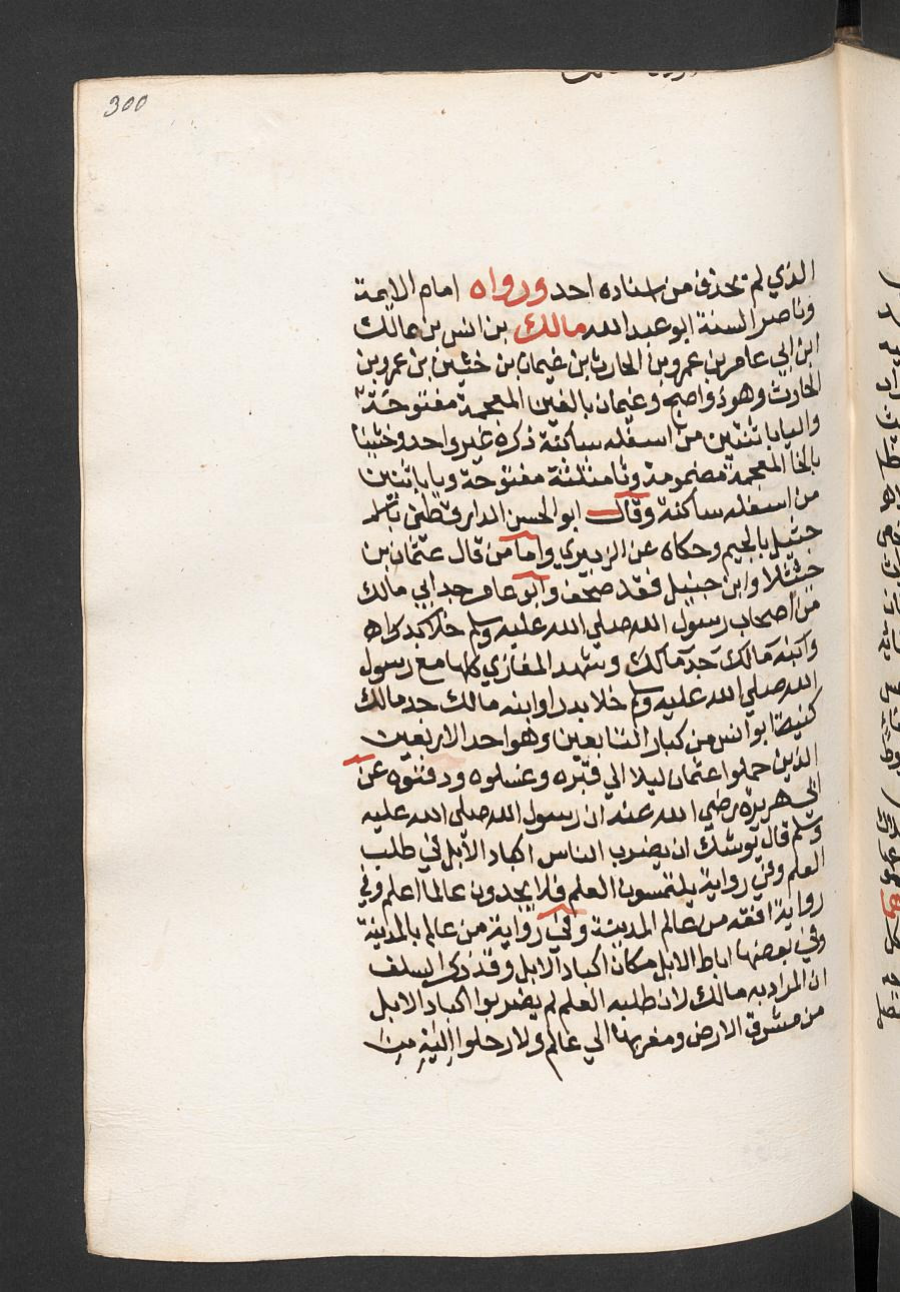 300
الذي لم يحذف من اسناده احد ورواه امام الايمة
وناصر السنة ابو عبد الله مالك بن انس بن مالك
ابن ابي عامر بن عمرو بن الحارث بن غيمان بن خثين بن عمرو بن
الحارث وهو ذو اصبح وغيمان بالغين المعجمة مفتوحة
واليا باثنتين من اسفله ساكنة ذكره غير واحد وخثينا
بالخا المعجمة مضمومة وثا مثلثة مفتوحة ويا باثنين
من اسفله ساكنة وقال ابو الحسن الدارقطني
جثيل بالجيم وحكاه عن الزبيري واما من قال عثمان بن
جثيلا وابن حنبل فقد صحف وابو عامر جد ابي مالك
من اصحاب رسول الله صلي الله عليه وسلم خلا
وابنه مالك جد مالك وشهد المغازي كلها مع رسول
الله صلي الله عليه وسلم خلا بدرا وابنه مالك جد مالك
كنيته ابو انس من كبار التابعين وهو احد الاربعين
الذين حملوا عثمان ليلا الي قبره وغسلوه ودفنوه عن
ابي هريرة رضي الله عنه ان رسول الله صلي الله عليه
وسلم قال يوشك ان يضرب الناس اكباد الابل في طلب
العلم وفي رواية يلتمسون العلم فلا يجدون عالما اعلم وفي
رواية افقه من عالم المدينة وفي رواية من عالم بالمدينة
وفي بعضها اباط الابل مكان اكباد الابل وقد ذكر السلف
ان المراد به مالك لان طلبه العلم لم يضربوا اكباد الابل
من مشرق الارض ومغربها الي عالم ولا رحلوا اليه من